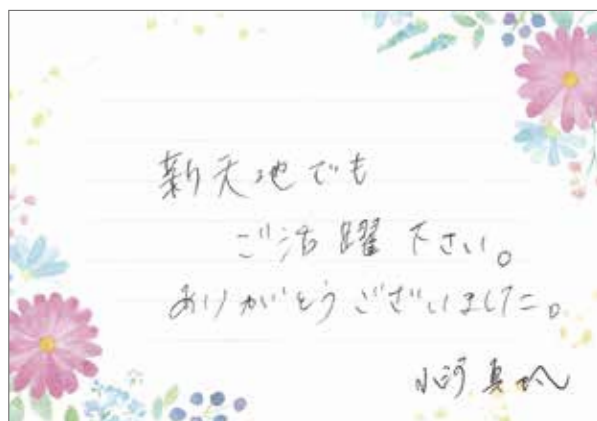 新天地でも
ご活躍下さい。
ありがとうございました。